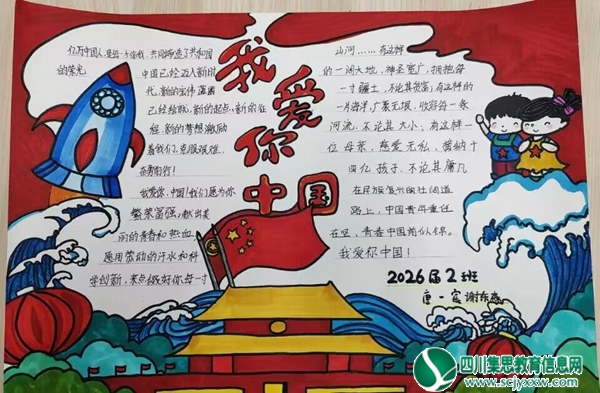 我爱你
中国
亿万中国人,是每一个你我,共同缔造了共和国
的荣光
中国已经迈入新时
代,新的宏伟蓝图
已经绘就,新的起点,新的征
程,新的梦想激励
着我们,克服艰难,
奋勇前行!
我爱你,中国!我们愿为你
繁荣富强,献出美
丽的青春和热血
愿用劳动的汗水和科
学创新,来点缀好你每一寸
山河……有这样
的一阔大地,神圣宽广,拥抱每
一寸疆土,不论其贫富;有这样的
一片海洋,广袤无垠,收容每一条
河流,不论其大小;有这样一
位母亲,慈爱无私,播纳十
四亿孩子,不论其庸凡
在民族复兴的壮阔道
路上,中国青年重任
在坚,青春中国前仆似棉。
我爱你中国!
2026届2班
唐一宸 谢东
四川集思教育信息网
www.scjyxxw.com